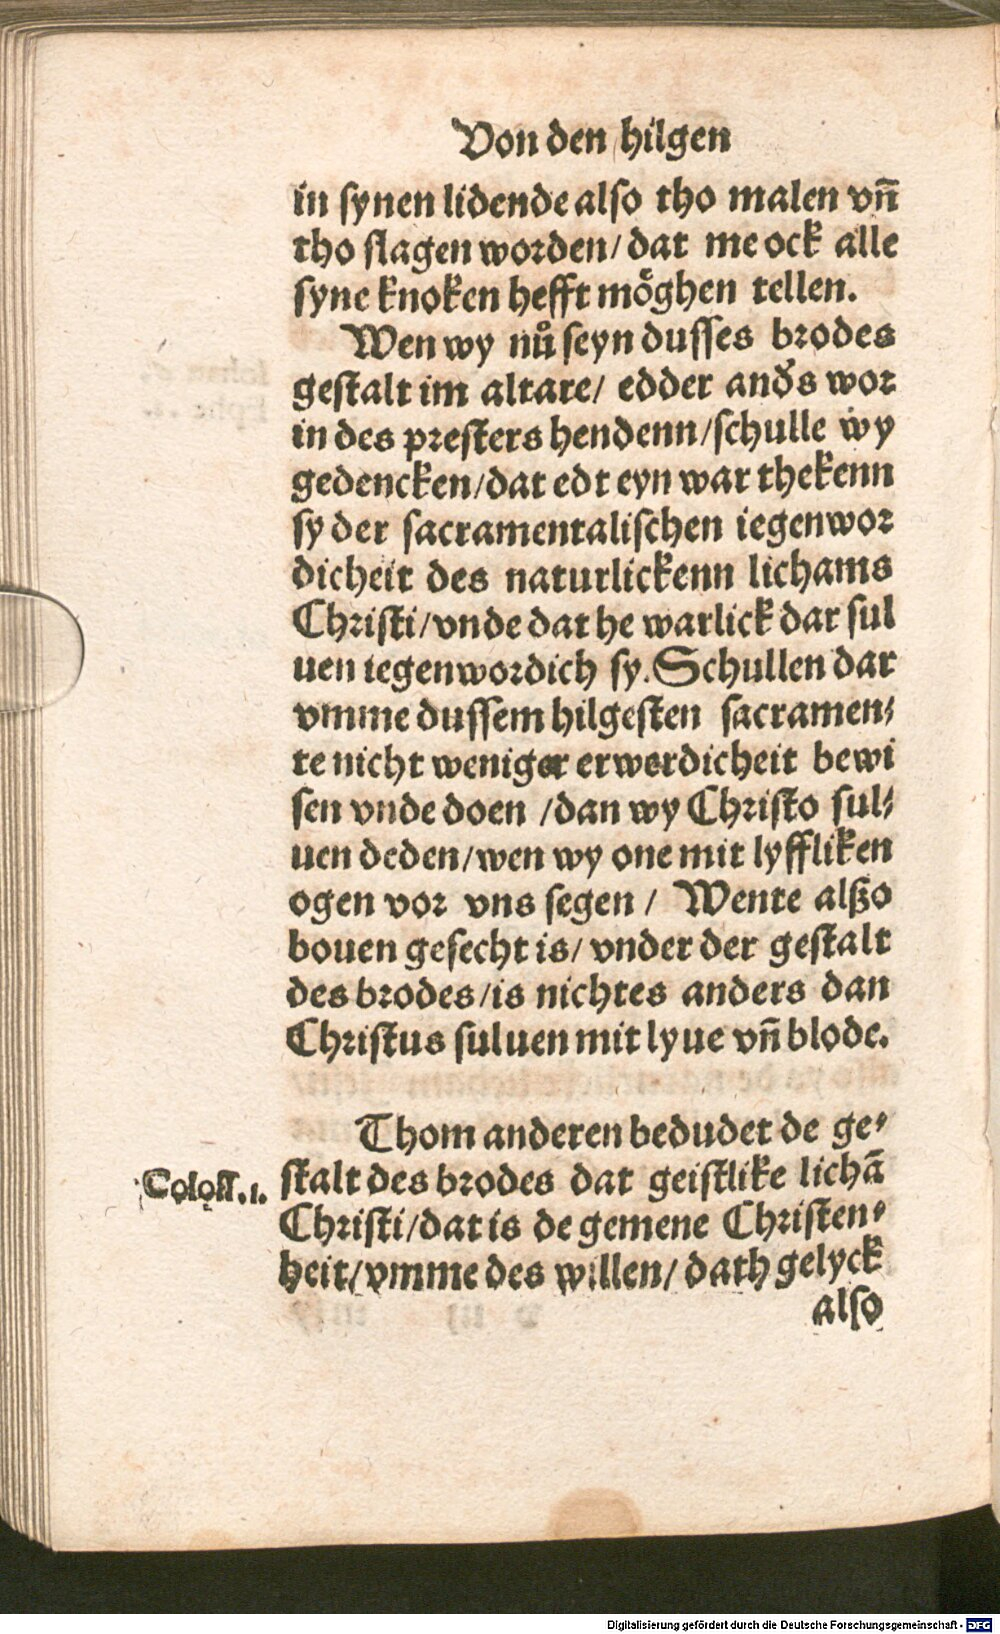 Von den hilgen
in synen lidende also tho malen vñ
tho slagen worden/ dat me ock alle
syne knoken hefft moͤghen tellen.
Wen wy nuͦ seyn dusses brodes
gestalt im altare/ edder anďs wor
in des presters hendenn/schulle wy
gedencken/dat edt eyn war thekenn
sy der sacramentalischen iegenwor
dicheit des naturlickenn lichams
Christi/vnde dat he warlick dar sul
uen iegenwordich sy. Schullen dar
vmme dussem hilgesten sacramen⸗
te nicht weniger erwerdicheit bewi
sen vnde doen /dan wy Christo sul⸗
uen deden/wen wy one mit lyffliken
ogen vor vns segen / Wente alßo
bouen gesecht is/ vnder der gestalt
des brodes/is nichtes anders dan
Christus suluen mit lyue vñ blode.
Thom anderen bedudet de ge⸗
Coloss.1. stalt des brodes dat geistlike lichã
Christi/dat is de gemene Christen⸗
heit/vmme des willen/ dath gelyck
also
Digitalisierung gefördert durch die Deutsche Forschungsgemeinschaft - DFG